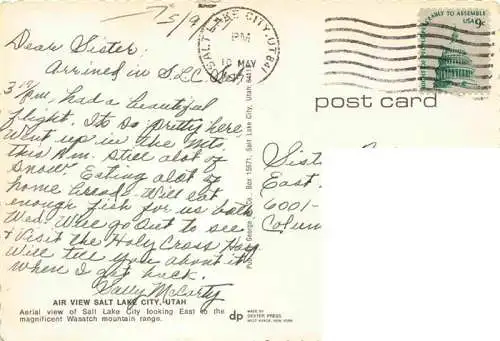 5/9/
Dear Sister:
Arrived in S.L.C. Sat.
3 P.M., had a beautiful
flight. Its so pretty here,
Went up in the Mts.
this A.m. Still alot of
snow. Eating alot of
home bread. Will eat
enough fish for us both
Wed. Will go out to see
& Visit the Holy Cross Hosp
Will tell you about it
when I get back.
Sally McCarty
AIR VIEW SALT LAKE CITY, UTAH
Aerial view of Salt Lake City looking East to the
magnificent Wasatch mountain range.
SALT LAKE CITY, UT 841
PM
10 MAY
TO ASSEMBLE
USA 9c
post card
George Co. Box 15671, Salt Lake City, Utah
Sist
East.
6001-
Colum
dp
MADE BY
DEXTER PRESS
WEST NYACK, NEW YORK